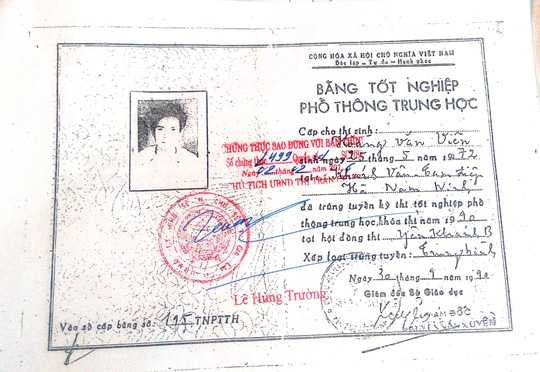 CỘNG HÒA XÃ HỘI CHỦ NGHĨA VIỆT NAM
Độc lập - Tự do - Hạnh phúc
BẰNG TỐT NGHIỆP
PHỔ THÔNG TRUNG HỌC
Cấp cho thí sinh: Hoàng Văn Viễn
sinh ngày 25 tháng 5 năm 1972
tại: Khánh Vân Tam Điệp
Hà Nam Ninh
đã trúng tuyển kỳ thi tốt nghiệp phổ
thông trung học, khóa thi năm 1990
tại hội đồng thi Yên Khánh B
Xếp loại trúng tuyển: Trung bình
Ngày 30 tháng 9 năm 1990
Giám đốc Sở Giáo dục
CHỨNG THỰC SAO ĐÚNG VỚI BẢN CHÍNH
Số chứng thực 2499
Ngày 02
CHỦ TỊCH UBND THỊ TRẤN
Lê Hùng Trường
Vào sổ cấp bằng số: 195 TNPTTH